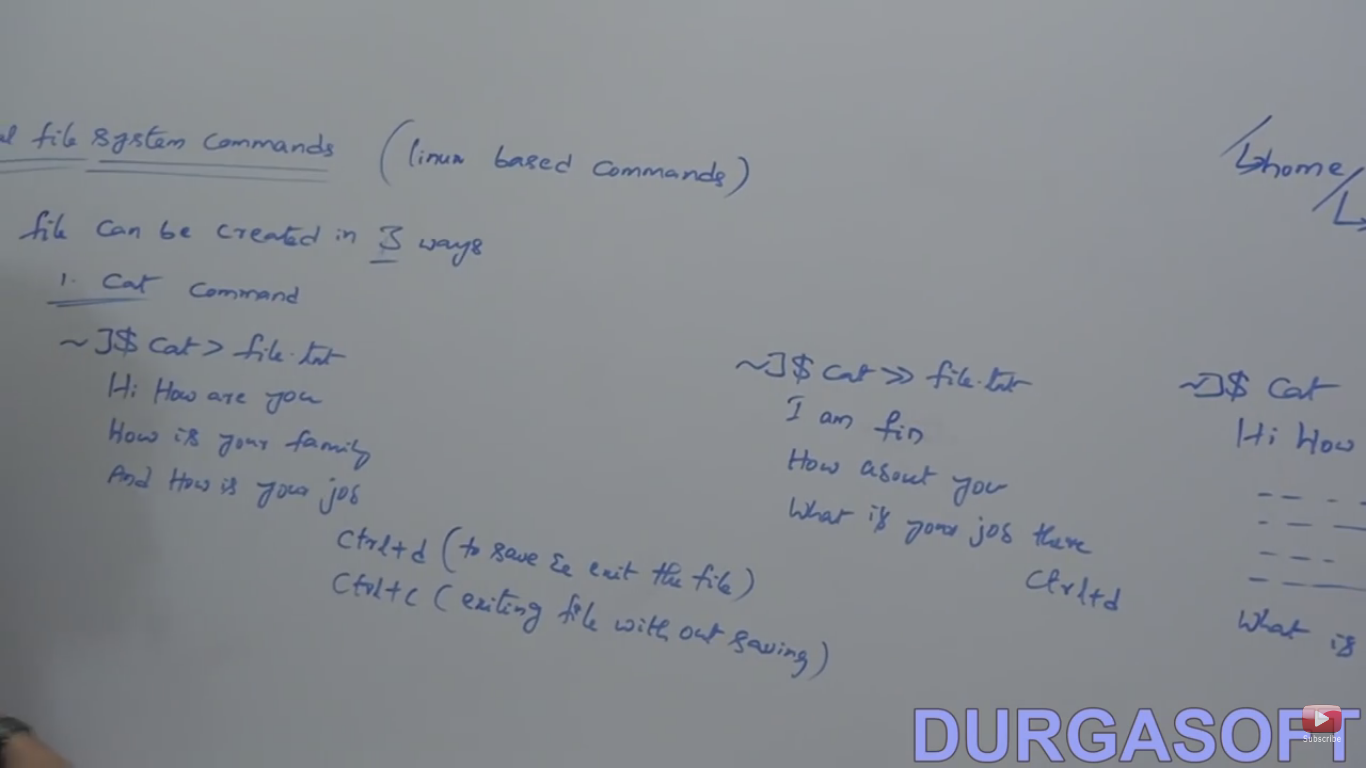 file system commands (linux based commands)
file can be created in 3 ways
1. Cat Command
~]$ cat > file.txt
Hi How are you
How is your family
And How is your job
Ctrl+d (to save & exit the file)
Ctrl+c (exiting file with out saving)
~]$ cat >> file.txt
I am fin
How about you
What is your job there
Ctrl+d
/
home
/
~]$ Cat
Hi How
What is
DURGASOFT
Subscribe